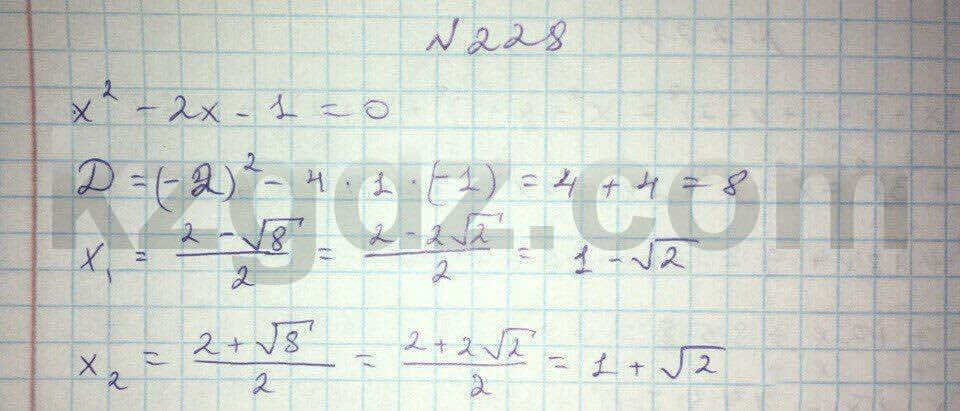 №228
x² - 2x - 1 = 0
D = (-2)² - 4 · 1 · (-1) = 4 + 4 = 8
x₁ = (2 - √8)/2 = (2 - 2√2)/2 = 1 - √2
x₂ = (2 + √8)/2 = (2 + 2√2)/2 = 1 + √2
kzgdz.com